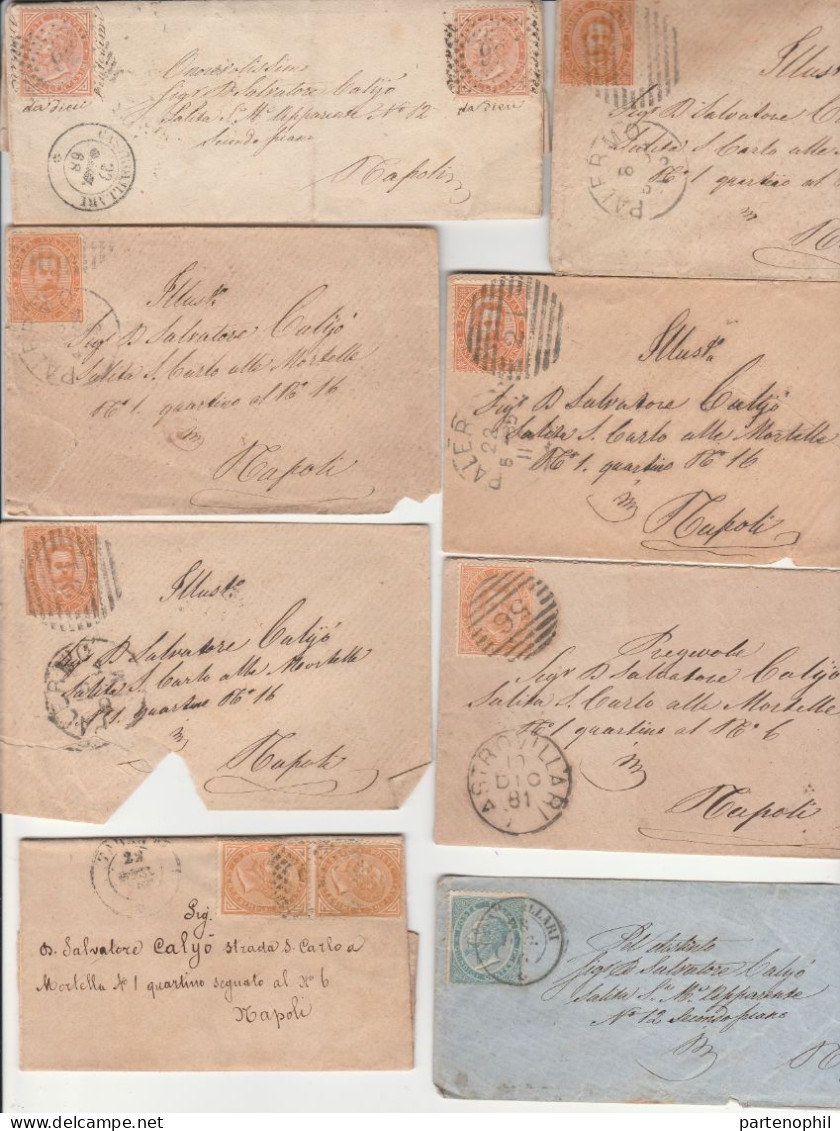 Onorevolissimo
Sigr D Salvatore Calyò
Salita S. Ma Apparente No 12
Secondo piano
Napoli
da dieci
da dieci
CASTROVILLARI
22
68
Illust
Sigr D. Salvatore
Salita S. Carlo alle
No 1. quartino al
PALERMO
Illustr.
Sigr D Salvatore Calyò
Salita S. Carlo alle Mortelle
No 1. quartino al No 16
Napoli
Illustr.
Sigr D Salvatore Calyò
Salita S. Carlo alle Mortelle
No 1. quartino No 16
Napoli
PALER
22
Illustr.
Sigr D Salvatore Calyò
Salita S. Carlo alle Mortelle
No 1. quartino No 16
Napoli
Pregevole
Sigr D Salvatore Calyò
Salita S. Carlo alle Mortelle
No 1 quartino No 6
Napoli
ASTROVILLARI
DIC
81
22
Sig.
D. Salvatore Calyò strada S. Carlo a
Mortella No 1 quartino segnato al No 6
Napoli
Sigr D Salvatore Calyò
Salita Sa Ma Apparente
No 12 Secondo piano
VILLARI
partenophil
www.delcampe.net